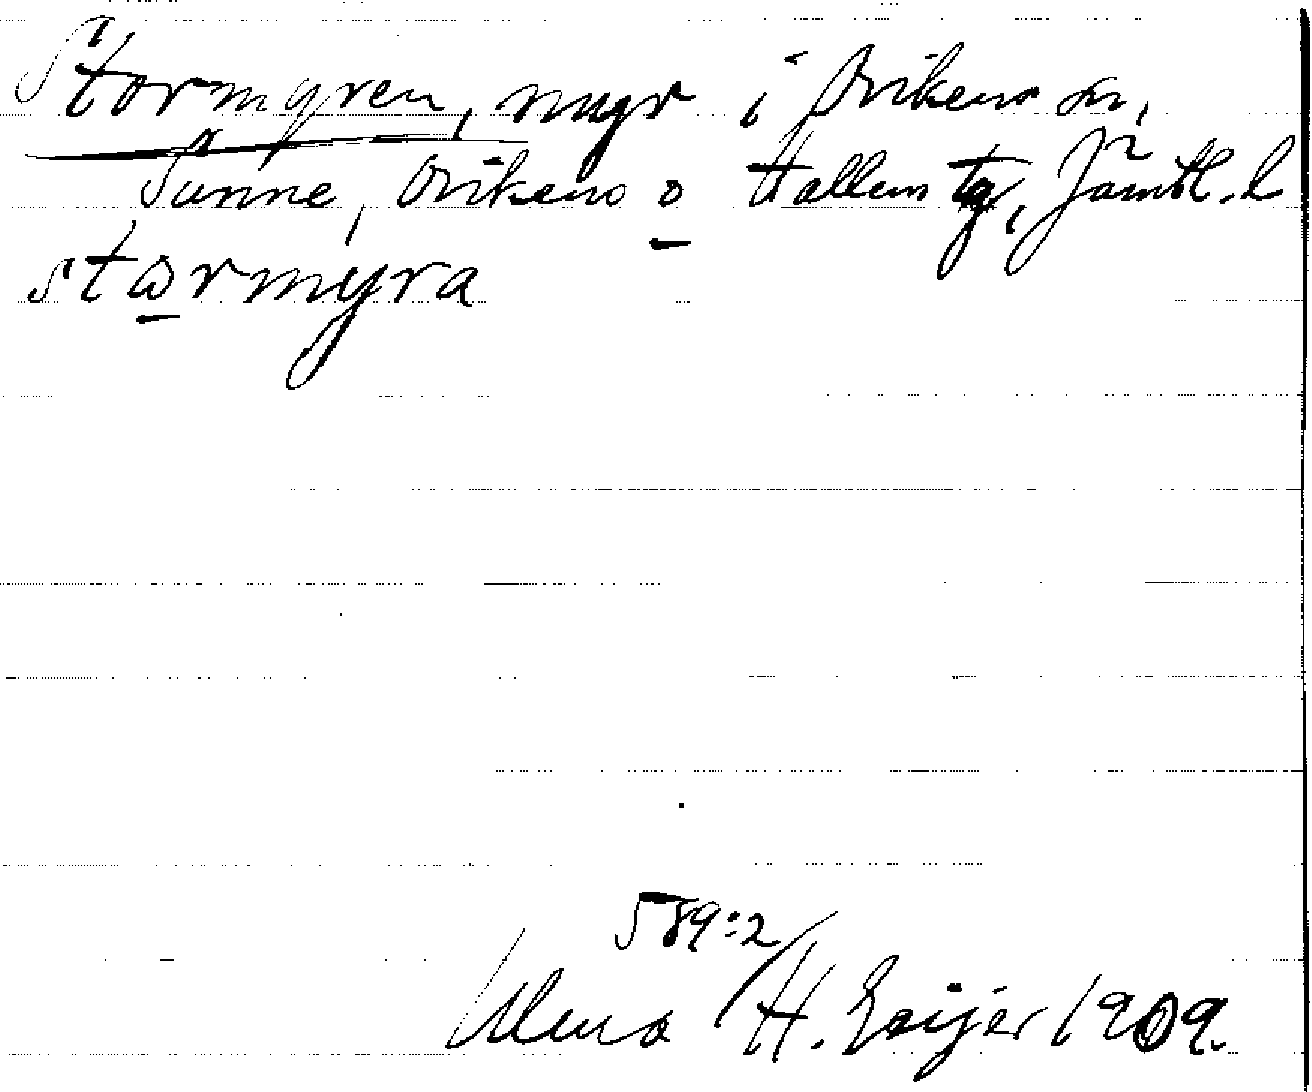 Stormyren, myr i Ovikens sn,
Sunne, Ovikens o Hallens tg, Jämtl. l
stormyra
589:2
H. Geijer 1909.